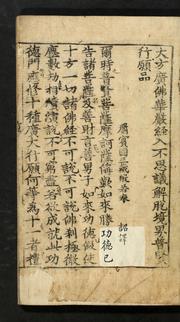 大方廣佛華嚴經入不思議解脫境界普賢
行願品
罽賓國三藏般若奉 詔譯
爾時普賢菩薩摩訶薩稱歎如來勝功德已
告諸菩薩及善財言善男子如來功德假使
十方一切諸佛經不可說不可說佛刹極微
塵數劫相續演說不可窮盡若欲成就此功
德門應修十種廣大行願何等為十一者禮